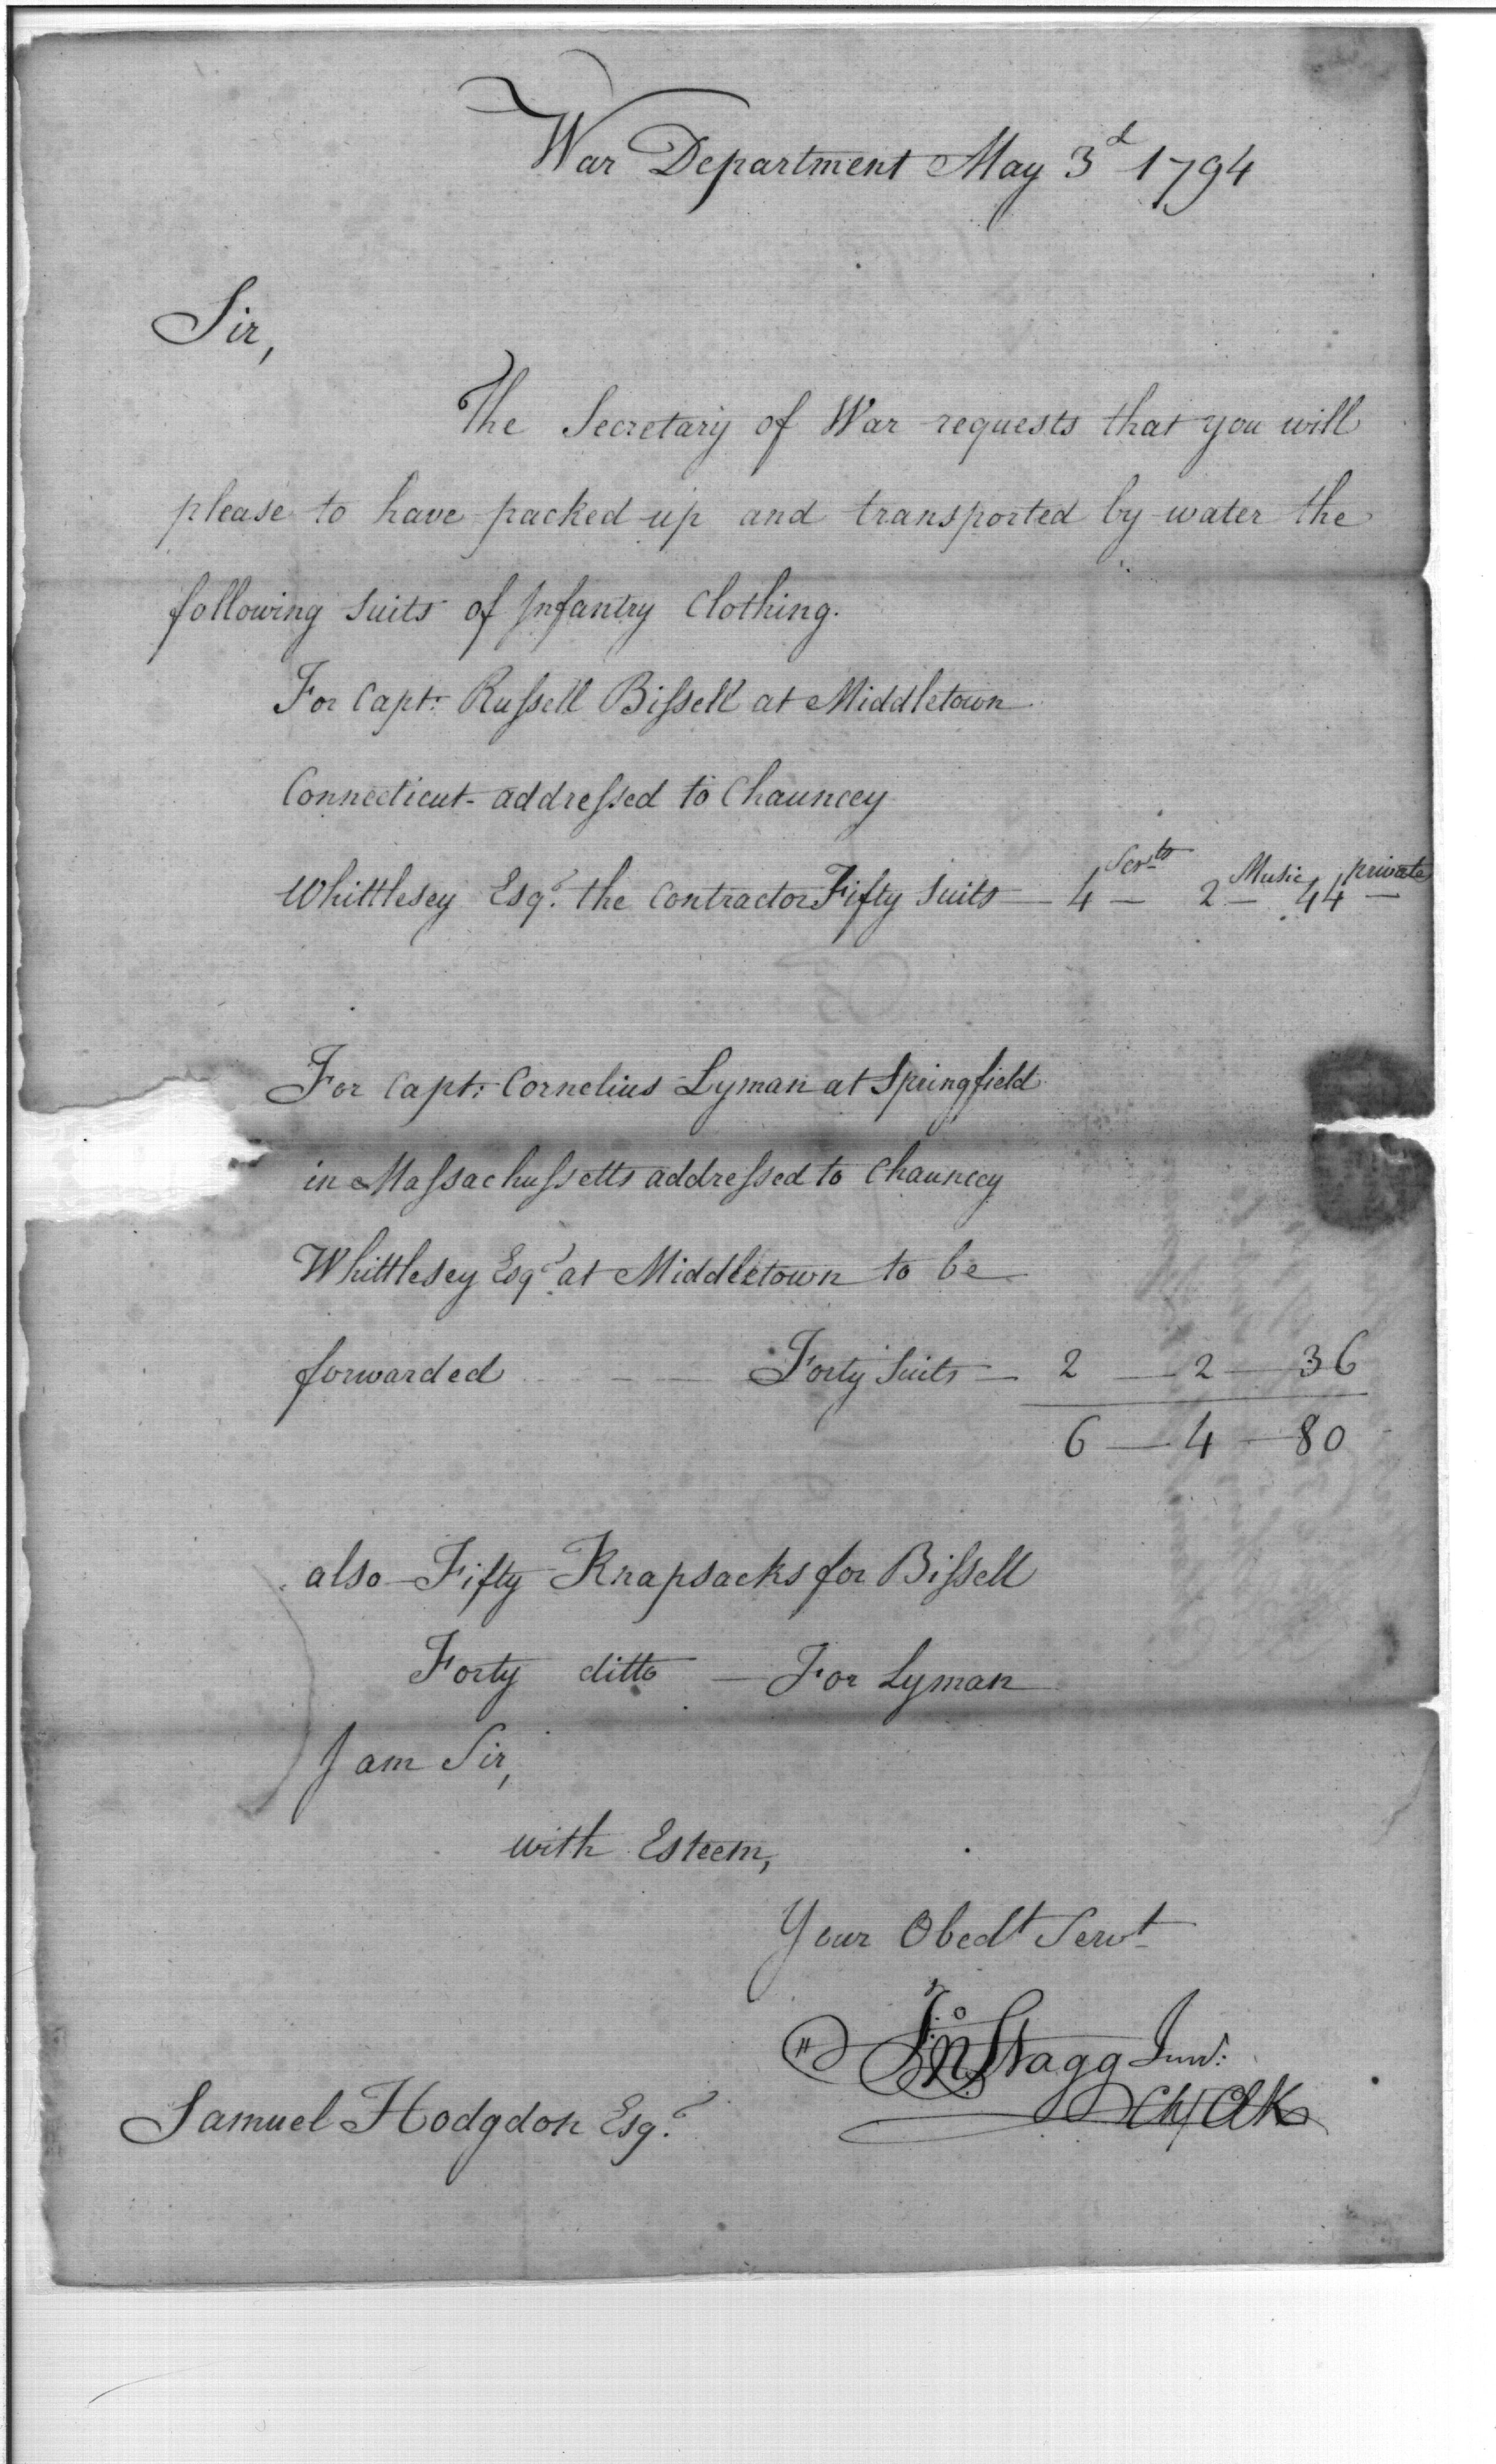 War Department May 3d 1794
Sir,
The Secretary of War requests that you will
please to have packed up and transported by water the
following suits of Infantry Clothing.
For Capt. Russell Bissell at Middletown
Connecticut addressed to Chauncey
Serts Music private
Whittlesey Esqr. the Contractor Fifty suits — 4 — 2 — 44 —
For Capt. Cornelius Lyman at Springfield
in Massachussetts addressed to Chauncey
Whittlesey Esqr. at Middletown to be
forwarded — — — Forty suits — 2 — 2 — 36
6 — 4 — 80
also Fifty Knapsacks for Bissell
Forty ditto — For Lyman
I am Sir,
with Esteem,
Your Obedt Servt
Jno Stagg Junr.
Chf Clk
Samuel Hodgdon Esqr.